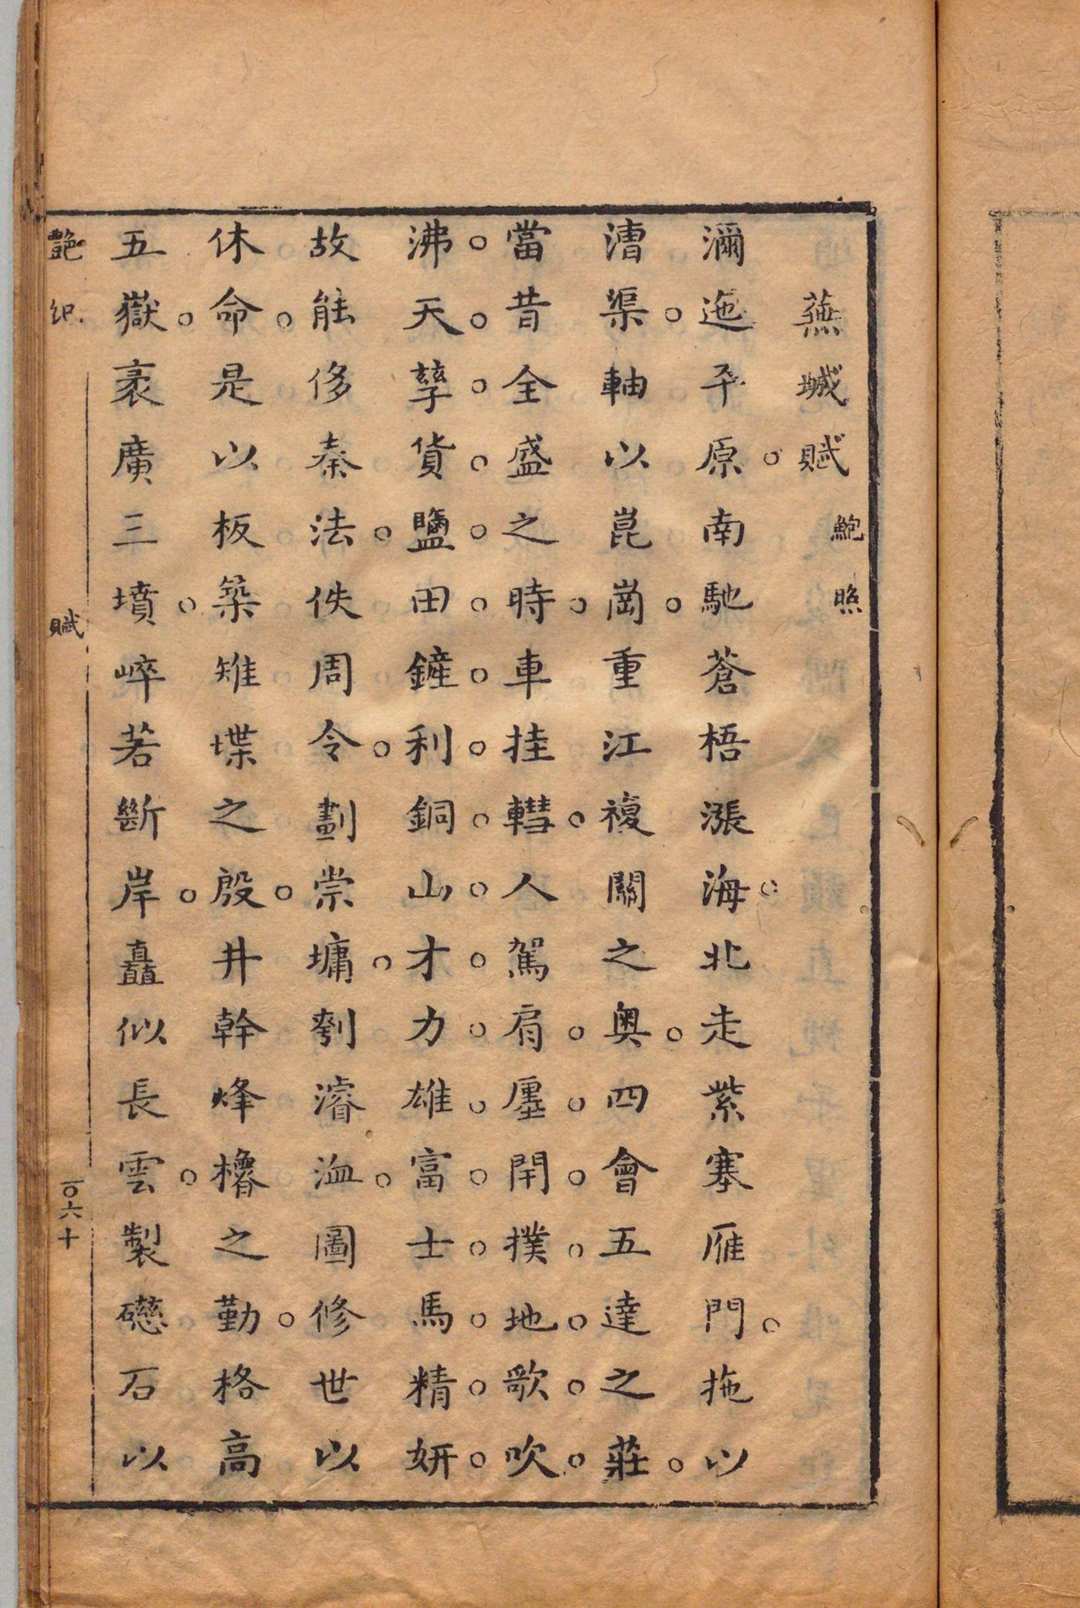 蕪城賦 鮑照
濔迤平原南馳蒼梧漲海北走紫塞雁門拖以
漕渠軸以崑崗重江複關之奧四會五達之莊
當昔全盛之時車挂轊人駕肩廛閈撲地歌吹
沸天孳貨鹽田鏟利銅山才力雄富士馬精妍
故能侈秦法佚周令劃崇墉刳濬洫圖修世以
休命是以板築雉堞之殷井幹烽櫓之勤格高
五嶽袤廣三墳崒若斷岸矗似長雲製礠石以
艷紀 賦 一〇六十